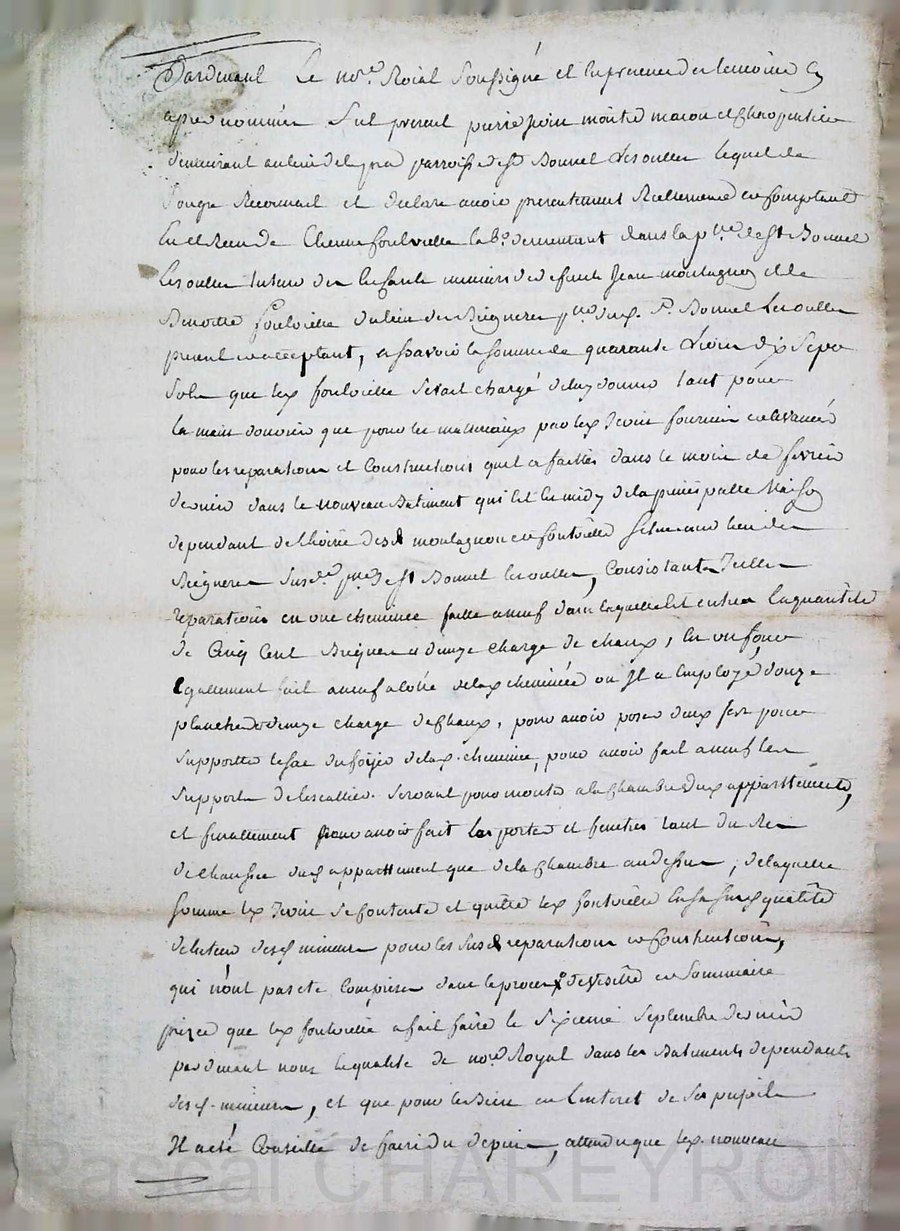 Pardevant Le no.re Roial Soussigné et En presence des temoins cy
apres nommés fut present pierre Jvoin maitre macon et Charpentier
demeurant au lieu del parroisse de st Bonnet Lesoulles lequel de
Son gre Reconnait et declare avoir presentement Reellement et Comptant
En et Receu de Etienne fontvielle Lab.r demeurant dans la p.sse de st Bonnet
Lesoulles tuteur des Enfants mineurs de defunts Jean montagnon et de
Benoitte fontvielle du lieu des Breigneres p.sse dud. St Bonnet Lesoulles
present et acceptant, assavoir la somme de quarante Livres dix Sept
Sols que led fontvielle setait chargé de luy donner tant pour
la main douvrier que pour les materiaux par led Jvoin fournis et avancés
pour les reparations et Constructions quil a faittes dans le mois de fevrier
dernier dans le nouveau Batiment qui Est En midy de la principalle Maison
dependant de lhoirie desd montagnon et fontvielle scitué au lieu des
Breigneres susd.e p.sse de st Bonnet lesoulles, Consistant Icelles
reparations en une cheminée faitte a neuf dans laquelle Est entrée la quantité
de Cinq Cent Briques et deux charge de chaux, En un four
Egallement fait a neuf a coté de lad cheminée ou Il a Employé douze
planches et deux charge de chaux, pour avoir posés deux fers pour
supporter du foyer de lad. cheminée, pour avoir fait a neuf les
supports de lescallier servant pour monter a la chambre dud appartement,
et finallement pour avoir fait les portes et fenetres tant du Rez
de chaussée dud appartement que de la chambre au dessus, de laquelle
somme led Jvoin se contente et quitte led fontvielle En sa susd qualité
de tuteur desd mineurs pour les susd reparations et Constructions,
qui n'ont pas eté Comprises dans le proces de visitte et Sommaire
prisee que led fontvielle a fait faire le sixieme Septembre dernier
par devant nous En qualité de no.re Royal dans les Batiments dependants
desd. mineurs, et que pour le Bien et Linteret de ses pupils
Il a eté Conseillé de faire du depuis, attendu que led. nouveau
Pascal CHAREYRON